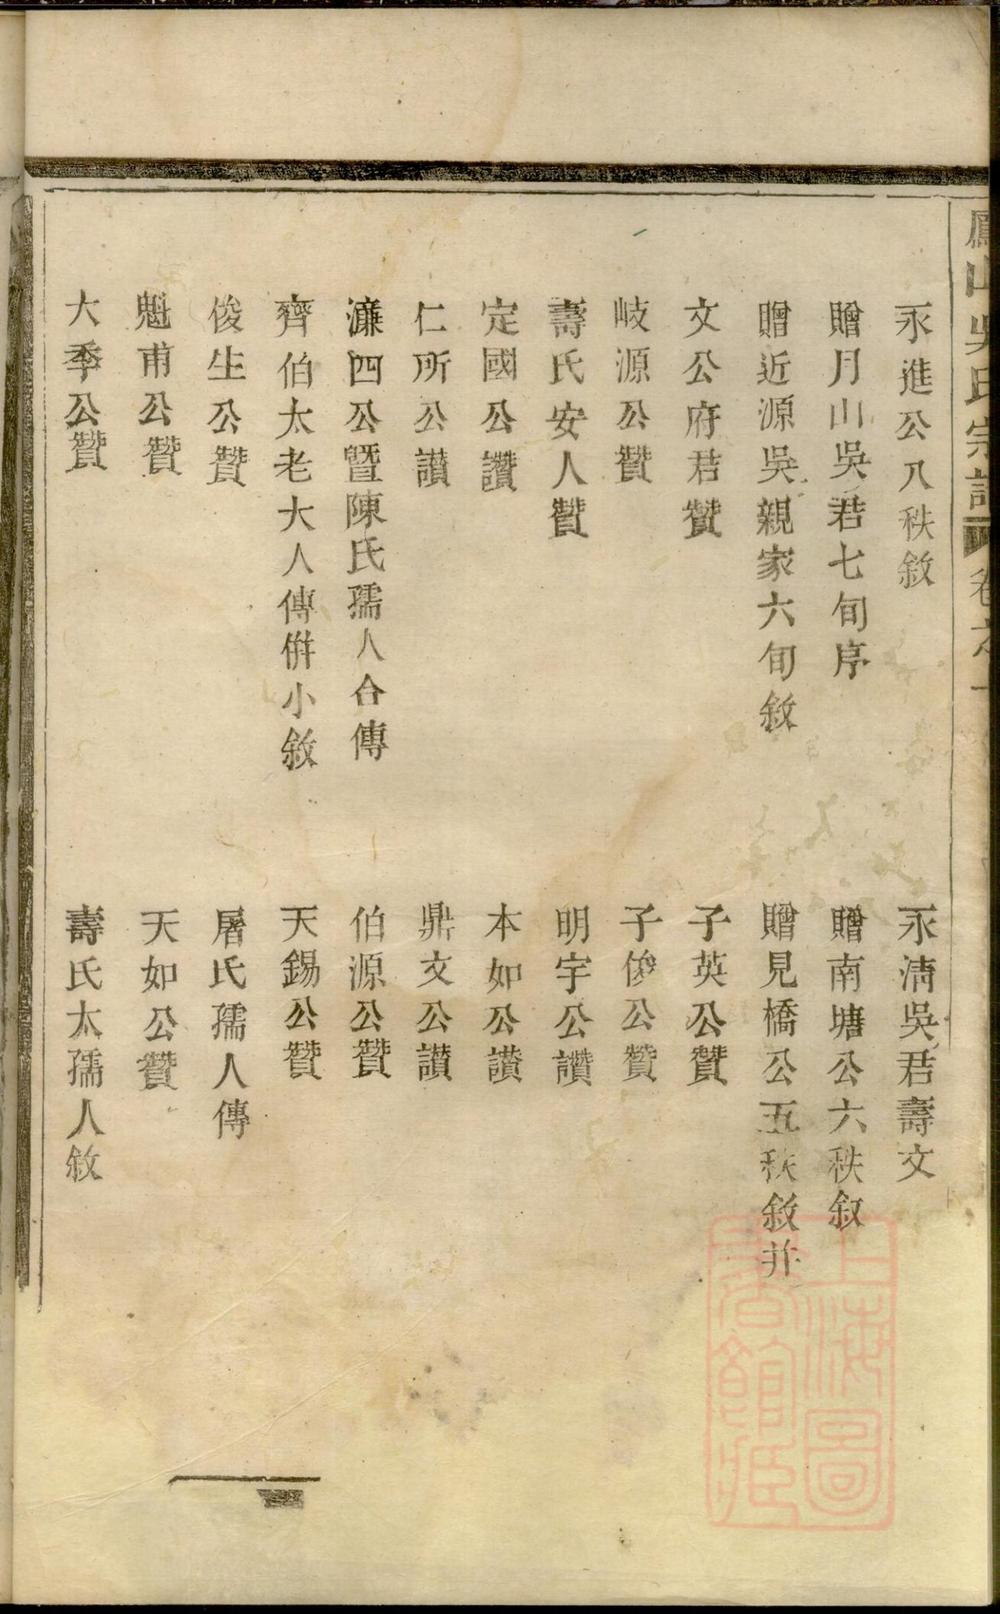 鳳山吳氏宗譜 卷之一
永進公八秩敘
永淸吳君壽文
贈月山吳君七旬序
贈南塘公六秩叙
贈近源吳親家六旬敘
贈見橋公五秩敘并
文公府君贊
子英公贊
岐源公贊
子俊公贊
壽氏安人贊
明宇公讚
定國公讚
本如公讃
仁所公讃
鼎文公讃
濂四公暨陳氏孺人合傳
伯源公贊
齊伯太老大人傳併小敘
天錫公贊
俊生公贊
屠氏孺人傳
魁甫公贊
天如公贊
大季公贊
壽氏太孺人敘
上海圖書館藏